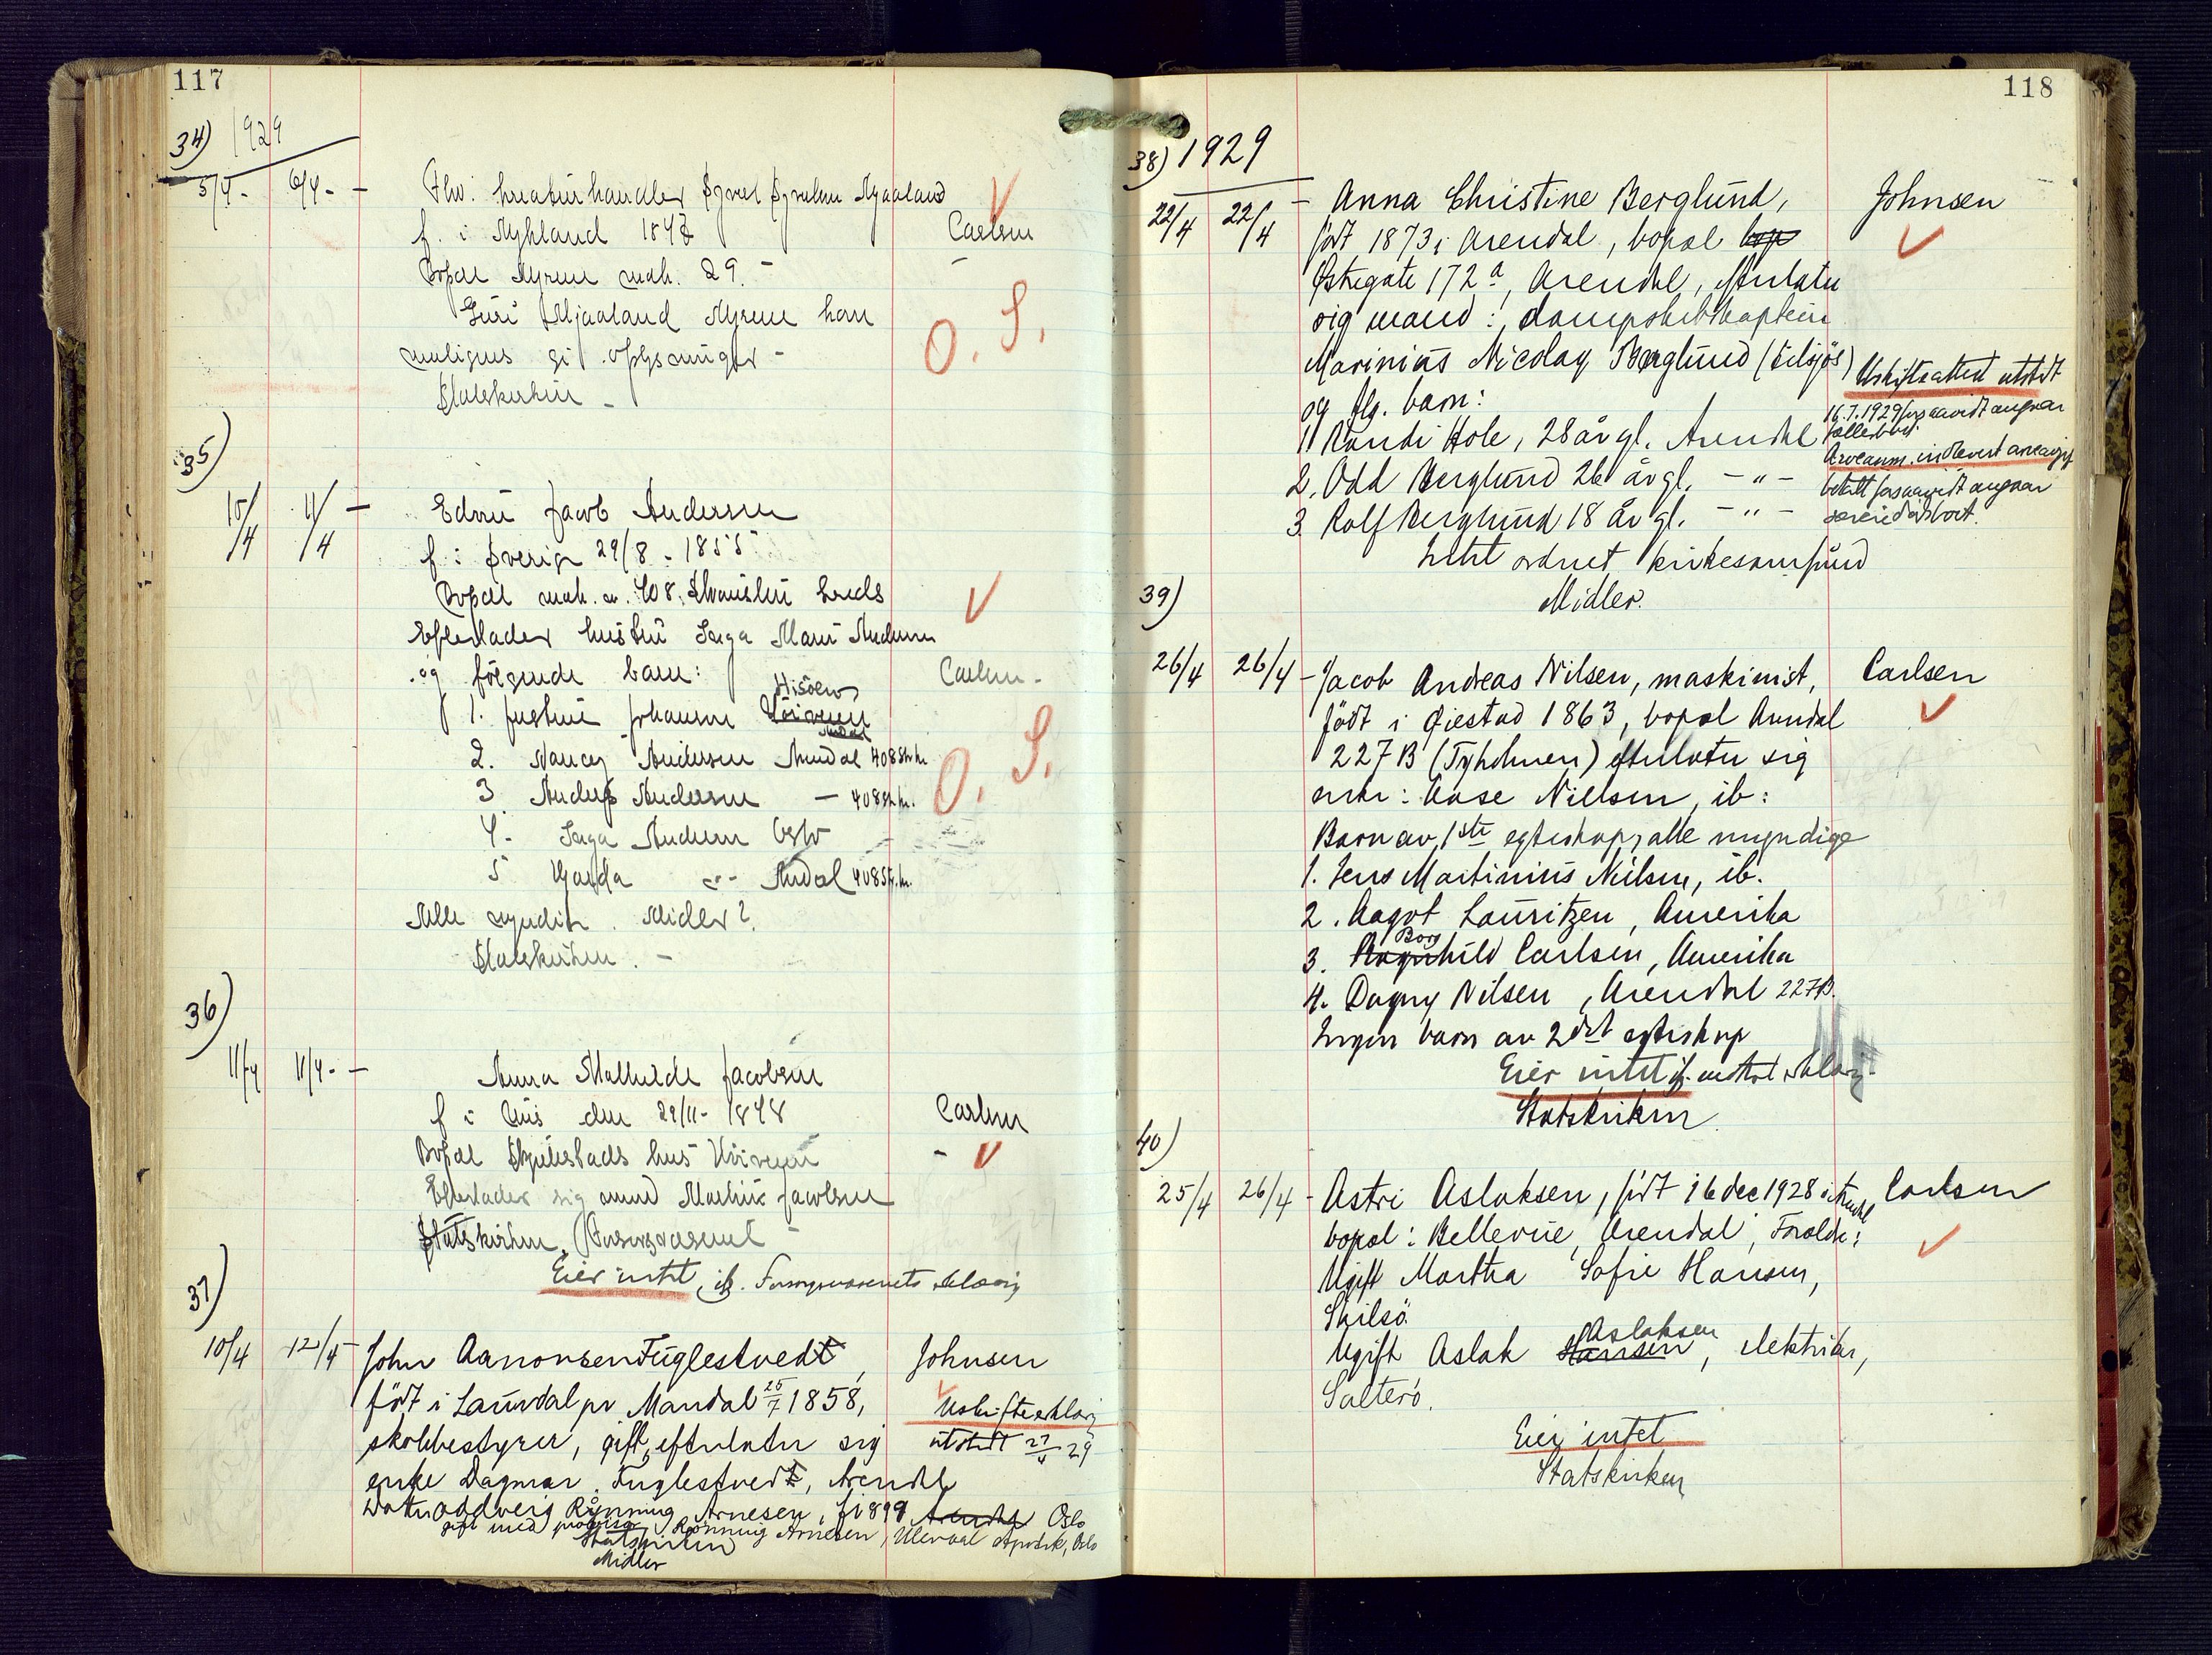 117
34) 1929
5/4 - 6/4 - - Fhv. kreaturhandler Mjaaland
Carlsen
f. i Mykland 1843
Bopæl Myrene matr. 29. -
Guri Mjaaland Myrene kan
muligens gi oplysninger -
O. S.
Statskirken -
35)
10/4 11/4 - Edvin Jacob Andersen
f. i Sverige 29/8 - 1855
Bopæl matr. nr. 408. Strømsbu kreds
Efterlader hustru Inga Marie Andersen
og følgende barn: Carlsen -
Hisøen
1. Justine Johansen
2. Nancy Andersen Arendal 408 Strbr.
3 Anders Andersen - 408 Str.br.
O. S.
4. Inga Andersen Oslo
5 -"- Arendal 408 Str.br.
Alle myndige. Midler?
Statskirken. -
36)
11/4 11/4 - - Anna Mathilde Jacobsen
f i den 29/11 - 1848 Carlsen
Bopæl hus -
Efterlader sig mand Jacobsen
Statskirken. (Forsorgsvæsenet -
Eier intet, if. Forsorgsvæsenets erklæring
37)
10/4 12/4 - John Aanonsen Fuglestvedt, Johnsen
født i Laudal pr Mandal 25/7 1858, Uskifteerklæring
skolebestyrer, gift, efterlater sig utstedt 27/4 29
enke Dagmar Fuglestvedt, Arendal
Datter Rönning Arnesen, f. 1899 Arendal Oslo
gift med Rönning Arnesen, Ulevaal Apotek, Oslo
Statskirken
Midler
118
38) 1929
22/4 22/4 - Anna Christine Berglund, Johnsen
født 1873 i Arendal, bopæl bop
Østregate 172 a, Arendal, efterlater
sig mand: dampskibskaptein
Marinius Nicolay Berglund (tilsjös)
og flg. barn:
1 Randi Hole, 28 år gl. Arendal
2. Odd Berglund 26 år gl. - " -
3 Rolf Berglund 18 år gl. - " -
Uskifteattest utstedt
16.7.1929 forsaavidt angaar
fællesboet
Arveanm. indlevert arveavgift
betalt forsaavidt angaar
særeiedødsboet.
Intet ordnet kirkesamfund
Midler.
39)
26/4 26/4 - Jacob Andreas Nilsen, maskinist, Carlsen
født i Øiestad 1863, bopæl Arendal
227 B (Tyholmen) efterlater sig
enke: Aase Nilsen, ib:
Barn av 1ste egteskap, alle myndige
1. Jens Martinius Nilsen, ib.
2. Aagot Lauritzen, Amerika
Borg
3. Ragnhild Carlsen, Amerika
4. Dagny Nilsen, Arendal 227B.
Ingen barn av 2det egteskap
Eier intet if. mottat erklæring
Statskirken.
40)
25/4 26/4 - Astri Aslaksen, født 16 dec 1928 i Arendal, Carlsen
bopæl: Bellevue, Arendal, Forældre:
Ugift Martha Sofie Hansen,
Skilsö.
Aslaksen
Ugift Aslak Hansen, elektriker,
Salterö.
Eier intet
Statskirken